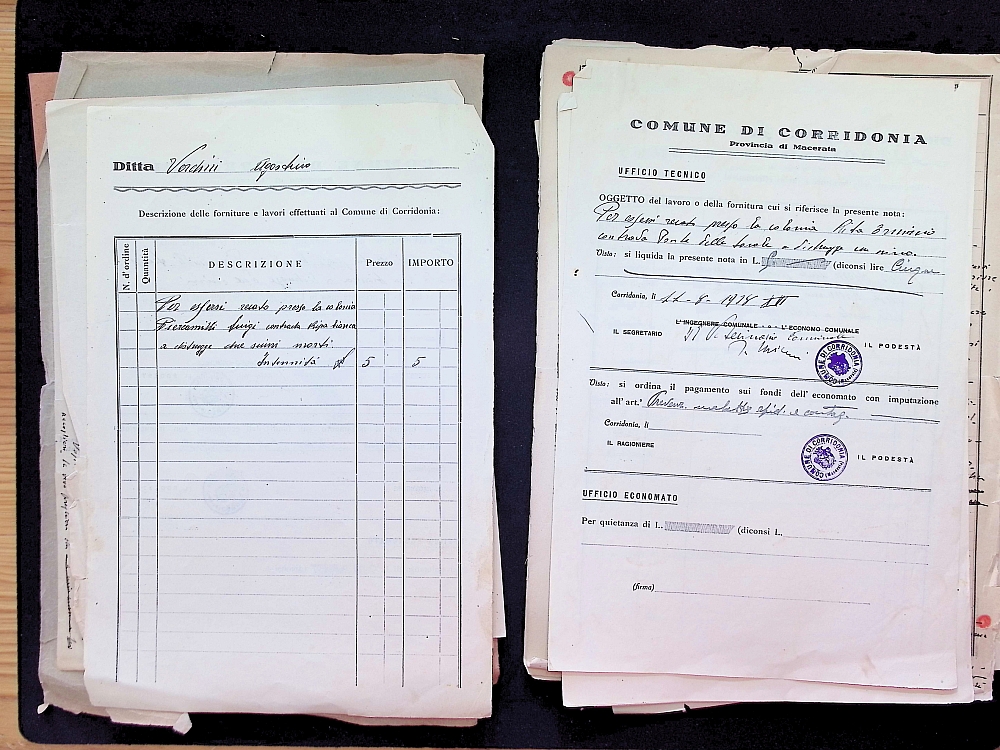 Ditta Verchiri Agostino
Descrizione delle forniture e lavori effettuati al Comune di Corridonia:
N. d'ordine
Quantità
DESCRIZIONE
Prezzo
IMPORTO
Per essersi recato presso la colonia
Piercamilli Luigi contrada Ripa bianca
a distrugge due suini morti
Indennità £ 5 5
COMUNE DI CORRIDONIA
Provincia di Macerata
UFFICIO TECNICO
OGGETTO del lavoro o della fornitura cui si riferisce la presente nota:
Per essersi recato presso la colonia Pita
contrada Ponte delle a distrugge un suino.
Visto: si liquida la presente nota in L. 5 (diconsi lire Cinque
Corridonia, li 11-8-1938 XVI
L'INGEGNERE COMUNALE - L'ECONOMO COMUNALE
IL SEGRETARIO
IL PODESTÀ
COMUNE DI CORRIDONIA
Visto: si ordina il pagamento sui fondi dell'economato con imputazione
all'art.°
Corridonia, li
IL RAGIONIERE
IL PODESTÀ
COMUNE DI CORRIDONIA
UFFICIO ECONOMATO
Per quietanza di L. (diconsi L.
(firma)